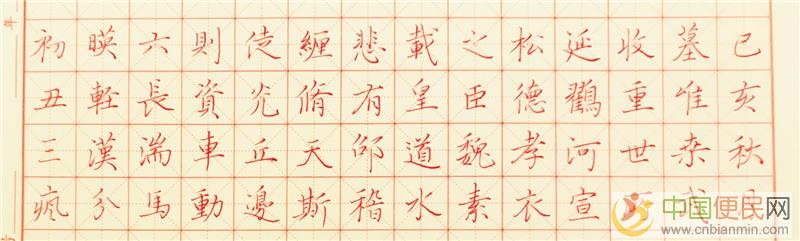 已亥秋
墓唯桒
收重世
延鸛河宣
松德孝衣
之臣魏素
載皇道水
悲有邰稽
纏脩天斯
徒兖丘邊
則資車動
六長湍馬
暎輊漢分
初丑三瘋
年
中国便民网
www.cnbianmin.com